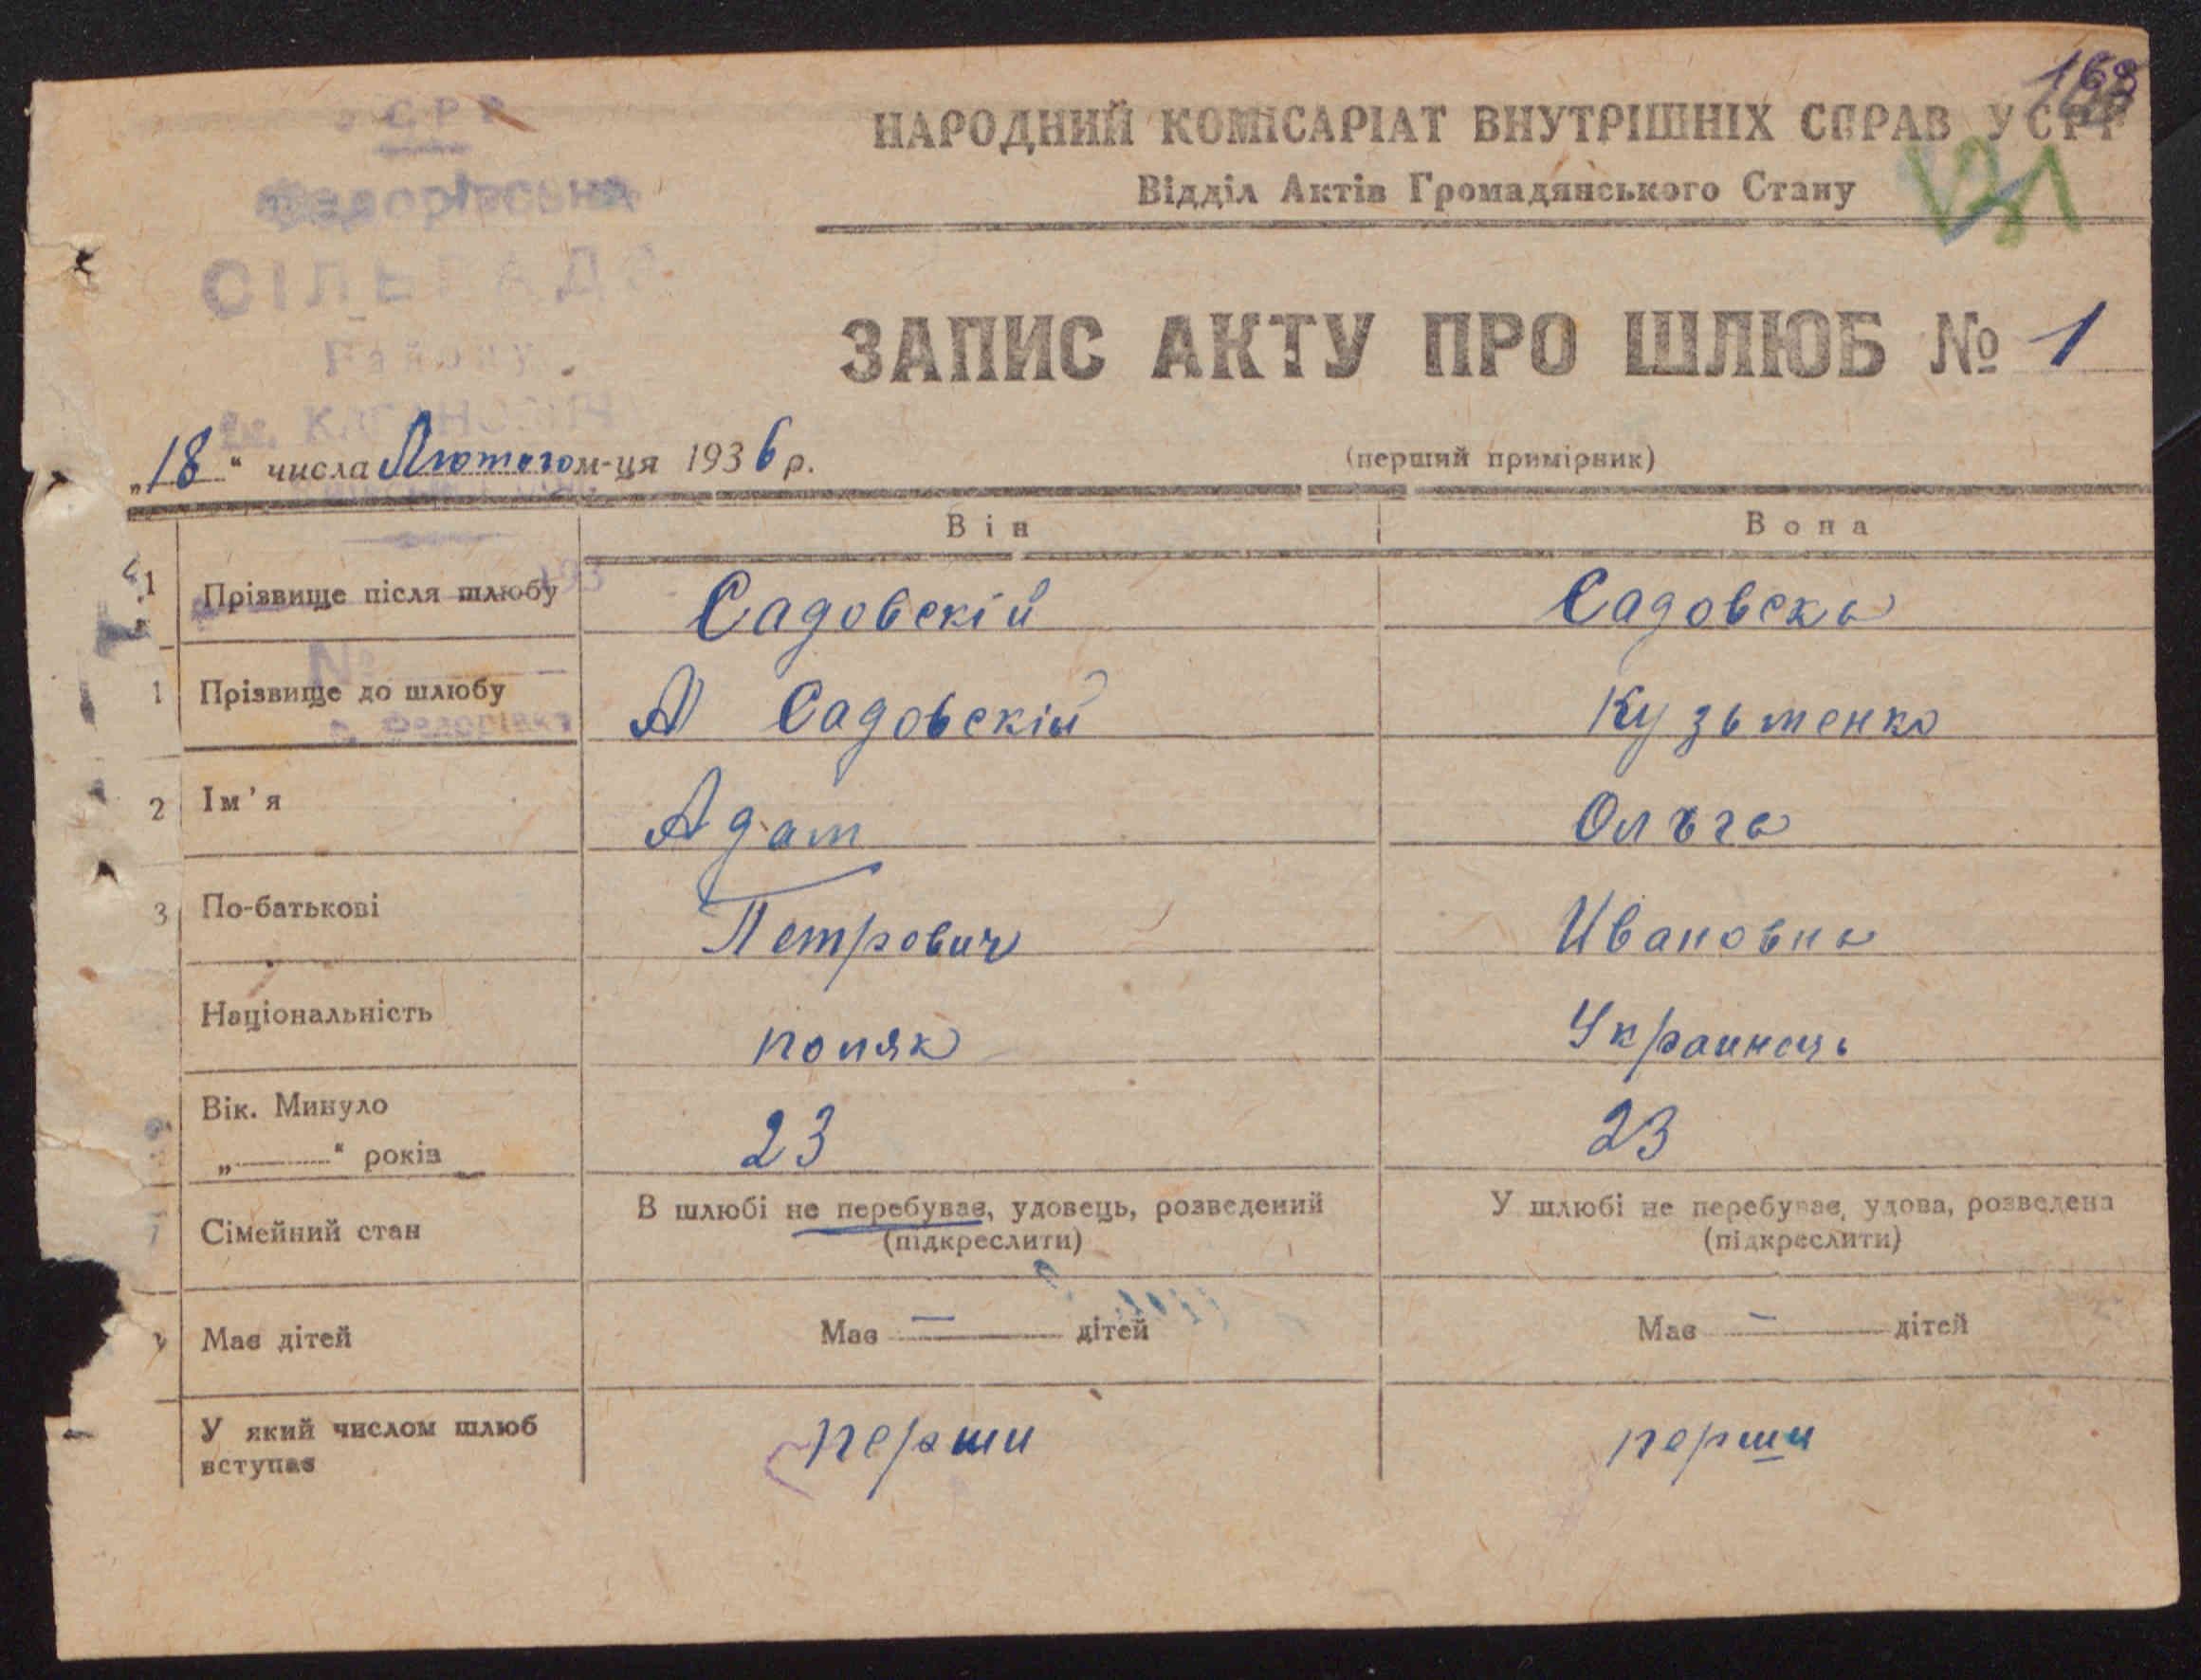 168
УСРР
Федорівська
СІЛЬРАДА
Району
ім. КАГАНОВИЧА
НАРОДНИЙ КОМІСАРІАТ ВНУТРІШНІХ СПРАВ УСРР
Відділ Актів Громадянського Стану
ЗАПИС АКТУ ПРО ШЛЮБ № 1
„18“ числа Лютого м-ця 1936 р.
(перший примірник)
Він Вона
1 Прізвище після шлюбу Садовскій Садовска
193
№
1 Прізвище до шлюбу А Садовскій Кузьменко
с. Федорівка
2 Ім'я Адам Ольга
3 По-батькові Петрович Ивановна
Національність поляк Украинець
Вік. Минуло
„ “ років 23 23
Сімейний стан В шлюбі не перебуває, удовець, розведений У шлюбі не перебуває, удова, розведена
(підкреслити) (підкреслити)
Має дітей Має — дітей Має — дітей
У який числом шлюб
вступає перши перши